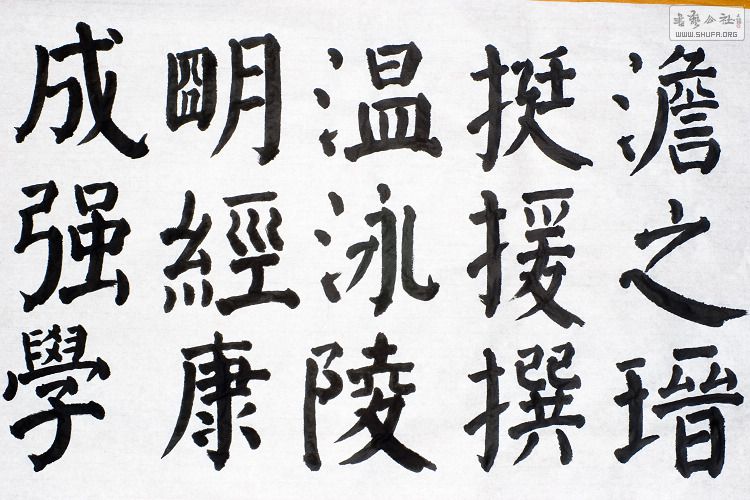 澹之瑨
挺援撰
温泳陵
朙經康
成强學
书艺公社
WWW.SHUFA.ORG